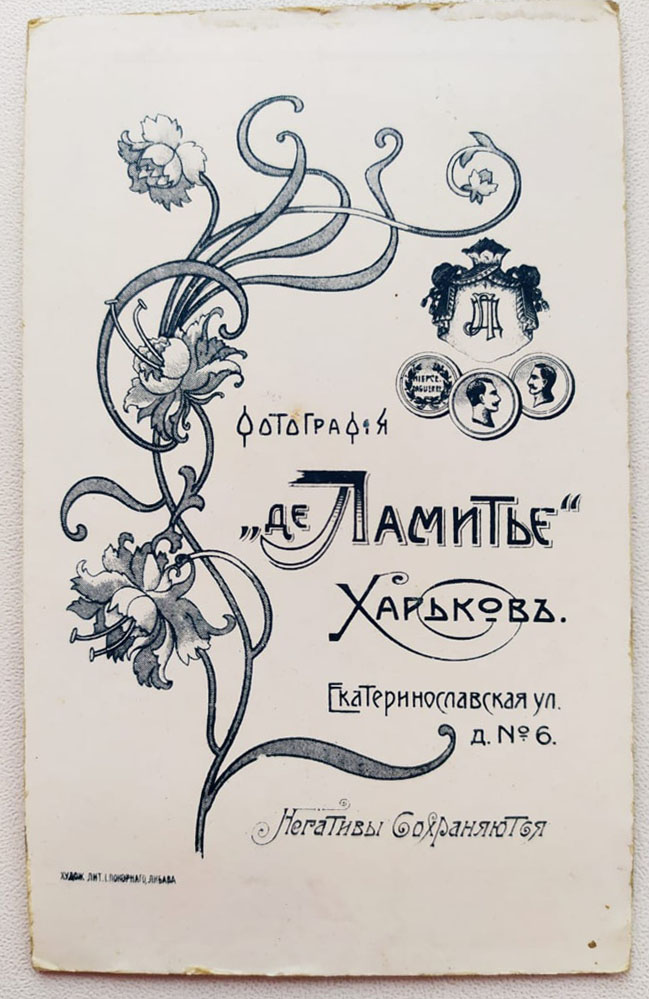 ДЛ
NIEPCE.
DAGUERRE
ФОТОГРАФIЯ
„ДЕ ЛАМИТЬЕ“
ХАРЬКОВЪ.
ЕКАТЕРИНОСЛАВСКАЯ УЛ.
Д. № 6.
НЕГАТИВЫ СОХРАНЯЮТСЯ
ХУДОЖ. ЛИТ. I. ПОКОРНАГО, ЛИБАВА